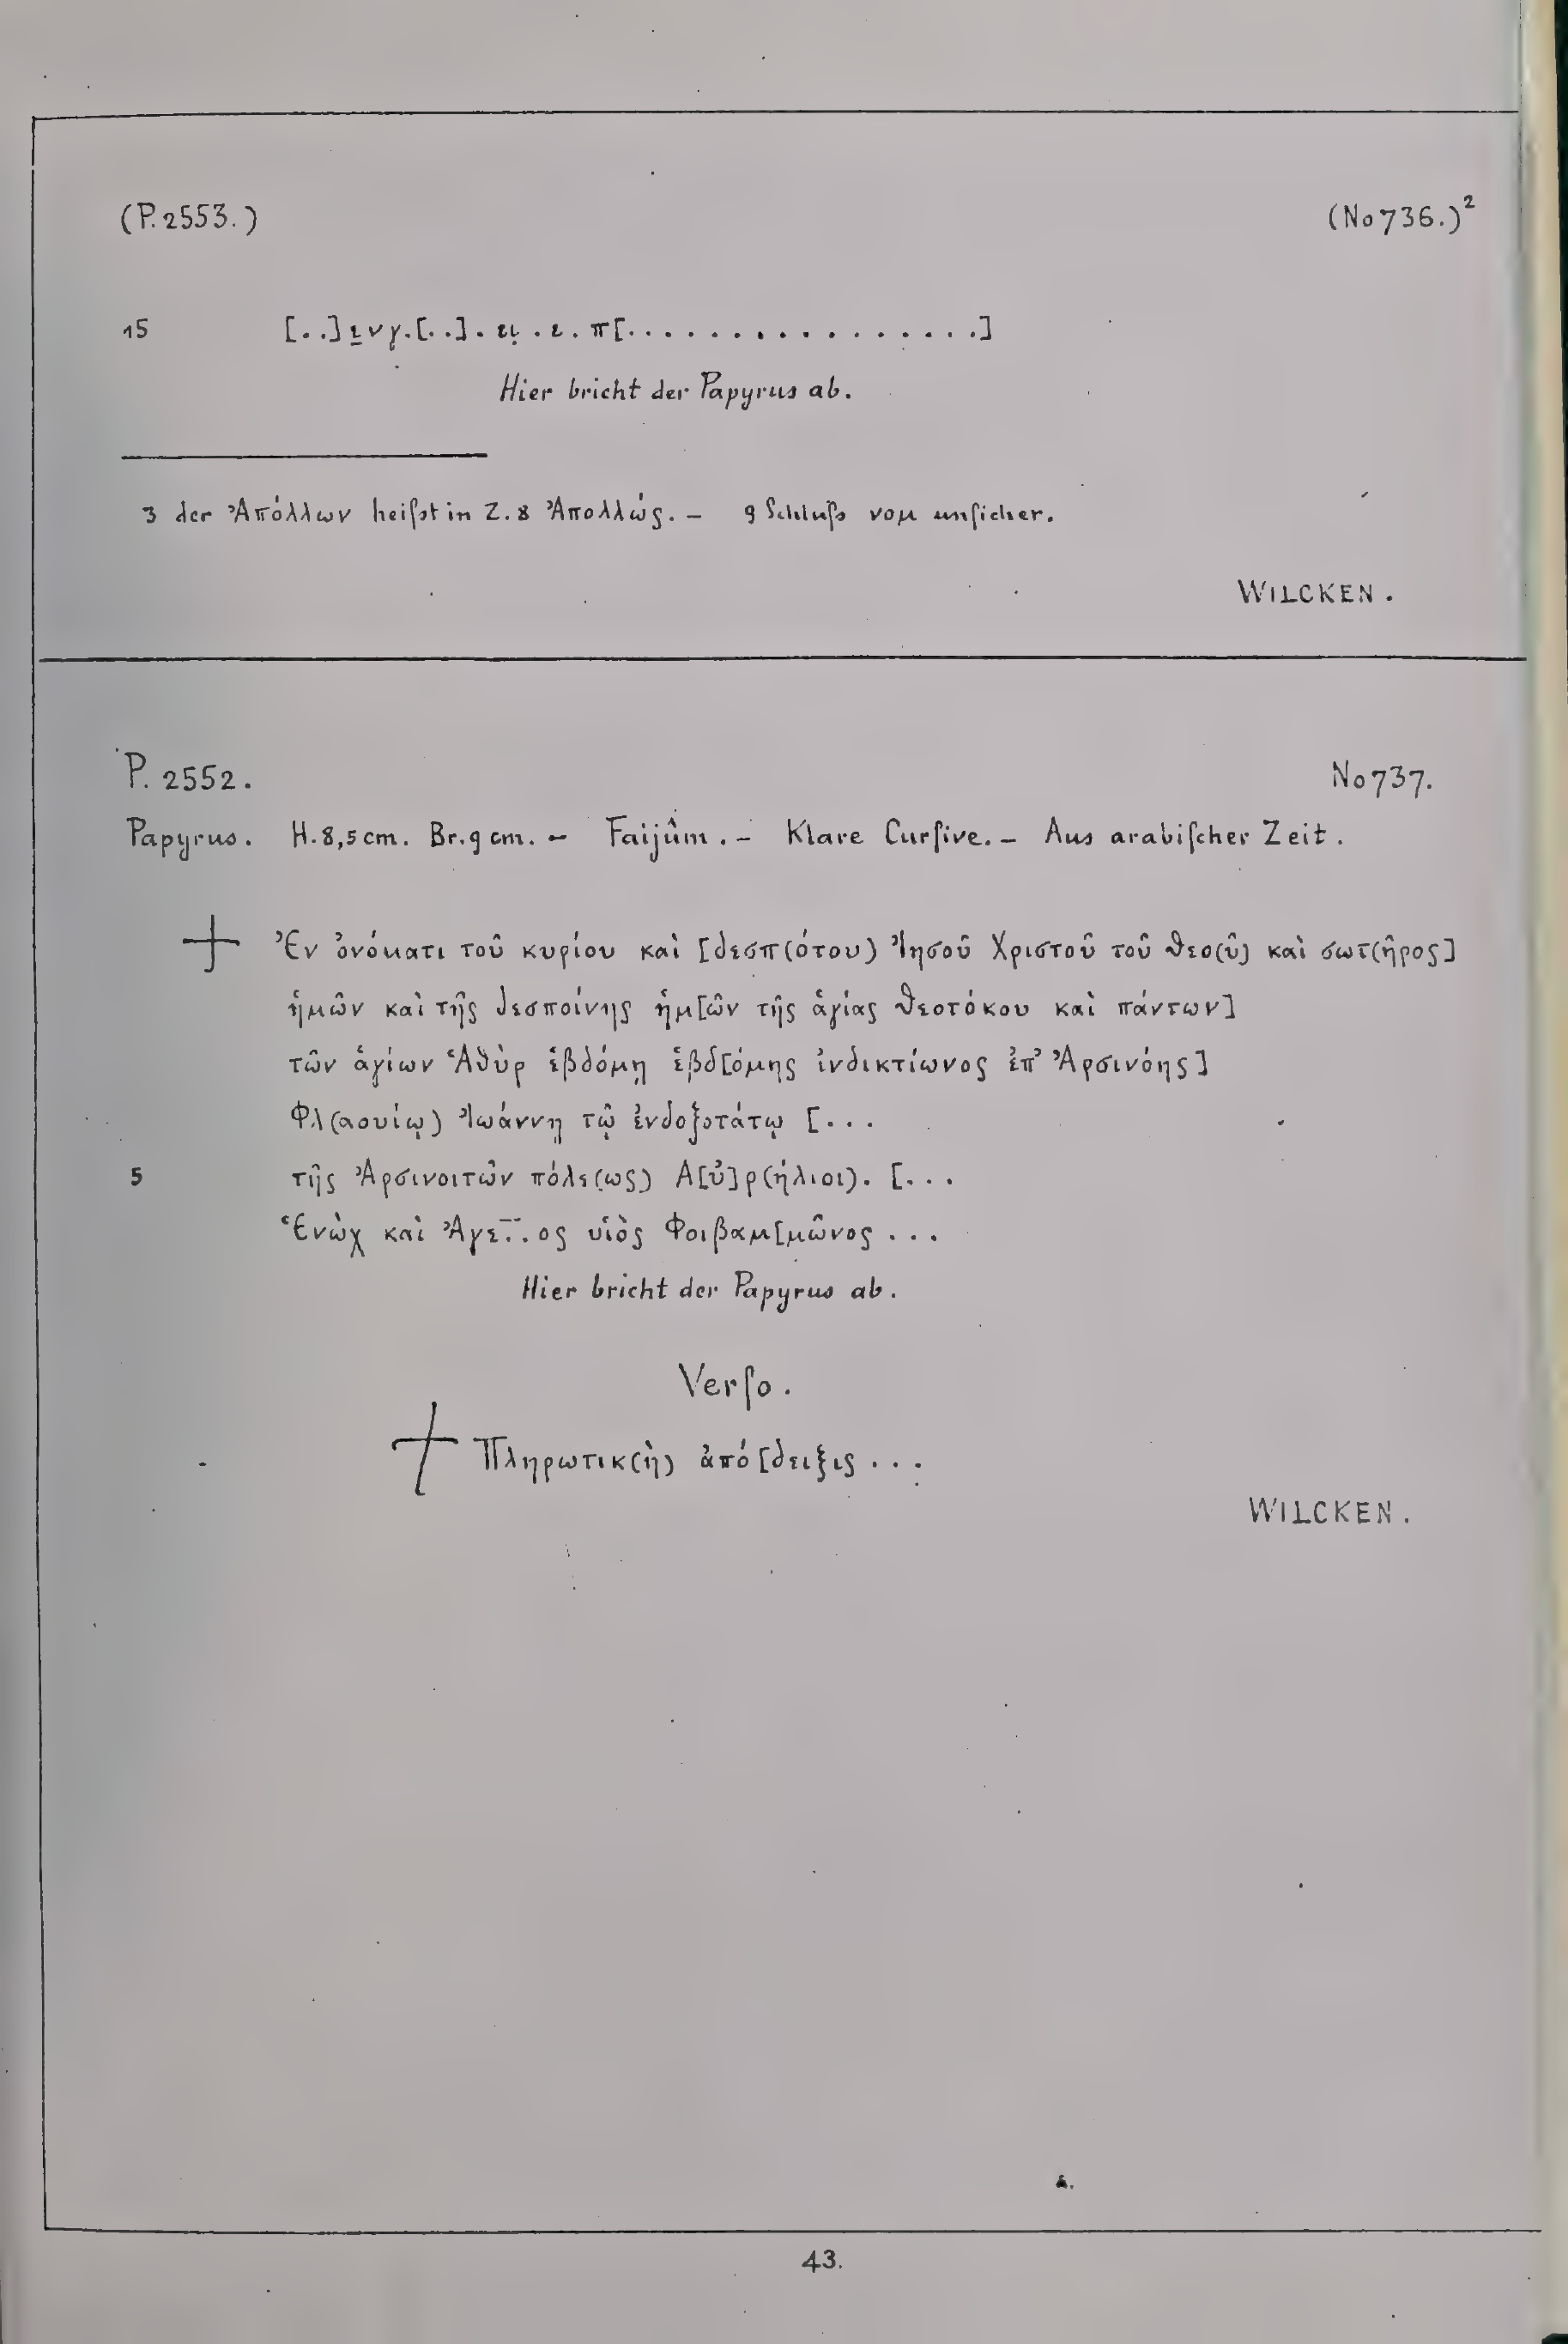 (P. 2553.) (No 736.)²
15 [..]ενγ.[..]. ει . ε . π[................]
Hier bricht der Papyrus ab.
3 der Ἀπόλλων heiſst in Z. 8 Ἀπολλώς. – 9 Schluſs νομ unſicher.
WILCKEN.
P. 2552. No 737.
Papyrus. H. 8,5 cm. Br. 9 cm. – Faijûm. – Klare Curſive. – Aus arabiſcher Zeit.
☩ Ἐν ὀνόματι τοῦ κυρίου καὶ [δεσπ(ότου) Ἰησοῦ Χριστοῦ τοῦ θεο(ῦ) καὶ σωτ(ῆρος]
ἡμῶν καὶ τῆς δεσποίνης ἡμ[ῶν τῆς ἁγίας θεοτόκου καὶ πάντων]
τῶν ἁγίων Ἁθὺρ ἑβδόμῃ ἑβδ[όμης ἰνδικτίωνος ἐπ' Ἀρσινόης]
Φλ(αουίῳ) Ἰωάννῃ τῷ ἐνδοξοτάτῳ [...
5 τῆς Ἀρσινοιτῶν πόλε(ως) Α[ὐ]ρ(ήλιοι). [...
Ἑνὼχ καὶ Ἀγε...ος υἱὸς Φοιβαμ[μῶνος ...
Hier bricht der Papyrus ab.
Verſo.
☩ Πληρωτικ(ὴ) ἀπό[δειξις ...
WILCKEN.
43.